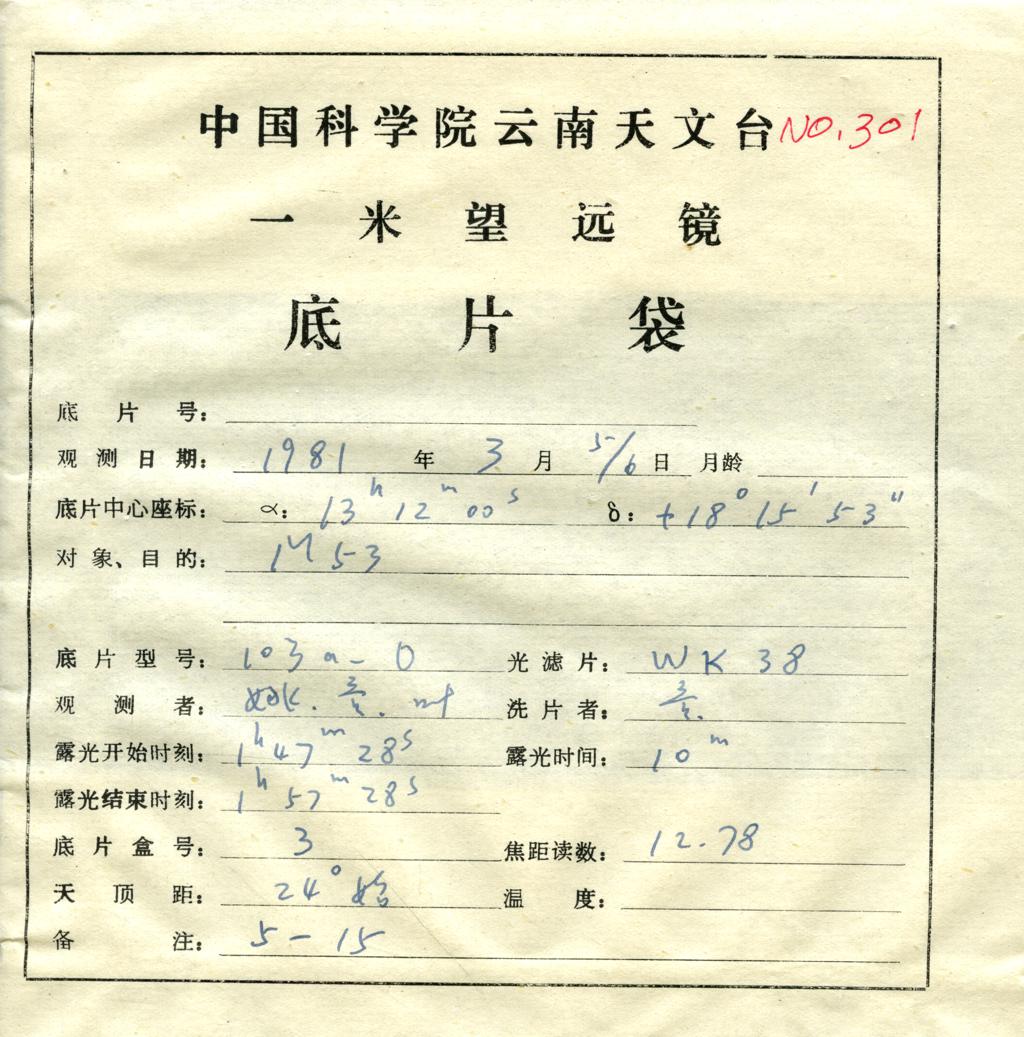 中国科学院云南天文台 NO.301
一米望远镜
底片袋
底片号:
观测日期: 1981 年 3 月 5/6 日 月龄
底片中心座标: α: 13h 12m 00s δ: +18° 15′ 53″
对象、目的: M53
底片型号: 103a-O 光滤片: WK38
观测者: 姚. 洗片者:
露光开始时刻: 1h 47m 28s 露光时间: 10m
露光结束时刻: 1h 57m 28s
底片盒号: 3 焦距读数: 12.78
天顶距: 24° 始 温度:
备注: 5-15